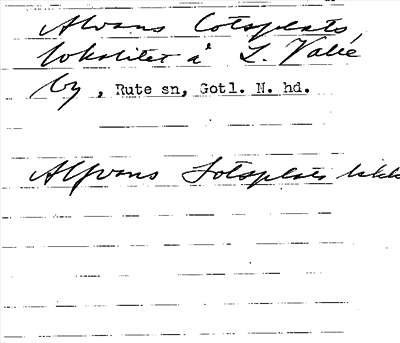 Alvans Lotsplats,
lokalitet å L. Valle
by, Rute sn, Gotl. N. hd.
Alfvans Lotsplats